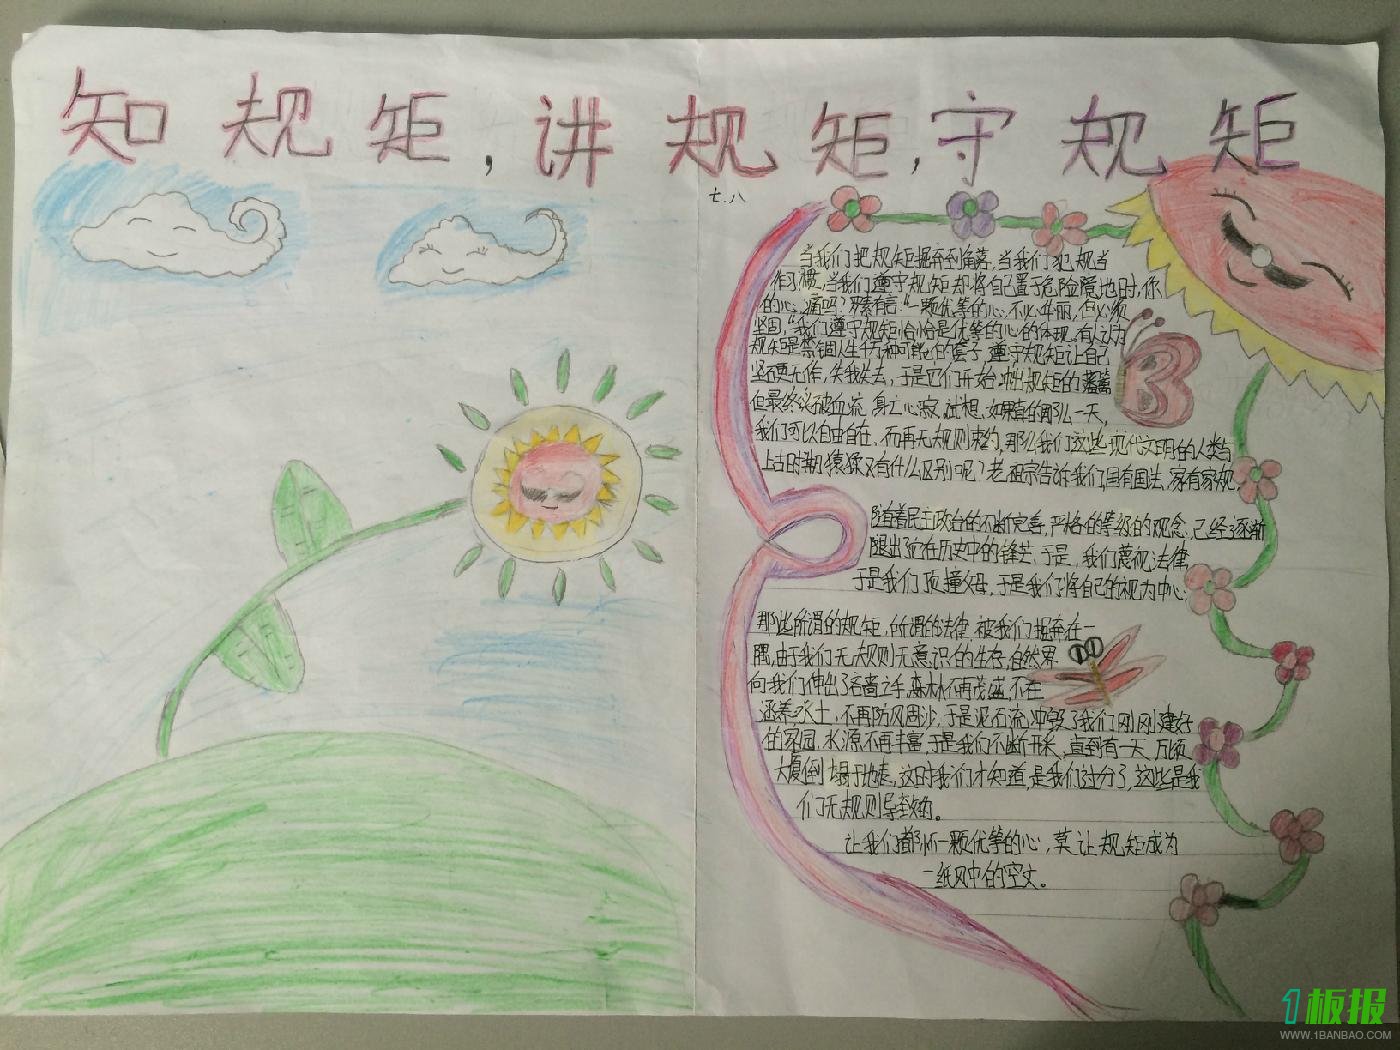 知规矩,讲规矩,守规矩
七.八
当我们把规矩摒弃到角落,当我们犯规当
作习惯,当我们遵守规矩却将自己置于危险境地时,你
的心,痛吗?罗素有言"一颗优等的心,不必华丽,但必须
坚固,"我们遵守规矩恰恰是优等的心的体现。有人认为
规矩是禁锢人生千万种可能性的套子,遵守规矩让自己
失去,于是它们开始冲出规矩的藩篱
但最终头破血流,身亡心寂,试想,如果真的有那么一天,
我们可以自由自在,而再无规则束约,那么我们这些现代文明的人类与
上古时期猿猱又有什么区别呢?老祖宗告诉我们,国有国法,家有家规,
随着民主政治的不断完善,严格的等级的观念,已经逐渐
退出了它在历史中的锋芒,于是,我们蔑视法律,
于是我们顶撞父母,于是我们将自己的视为中心.
那些所谓的规矩,所谓的法律,被我们摒弃在一
隅,由于我们无规则无意识的生存,自然界
向我们伸出了右凿之手,森林不再茂盛,不在
涵养水土,不再防风固沙,于是泥石流冲毁了我们刚刚建好
的家园,水源不再丰富,于是我们不断开采,直到有一天,万顷
大厦倒塌于地表,这时我们才知道,是我们过分了,这些是我
们无规则导致的。
让我们都怀一颗优等的心,莫让规矩成为
一纸风中的空文。
1板报
WWW.1BANBAO.COM